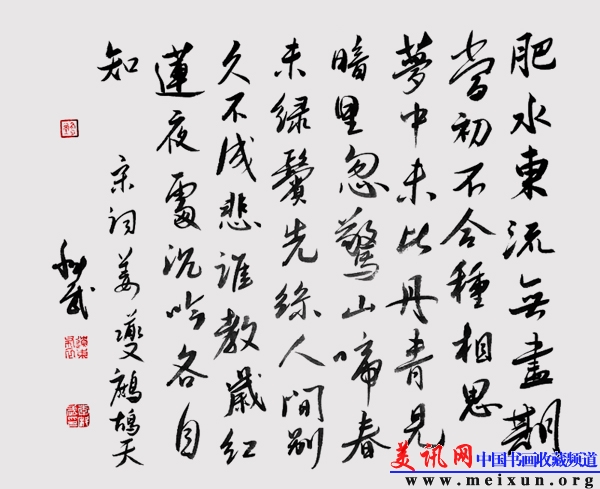 肥水東流無盡期
當初不合種相思
夢中未比丹青見
暗里忽驚山啼春
未緑鬢先絲人間别
久不成悲誰教歲紅
蓮夜處沉吟各自
知
宋詞姜夔鷓鴣天
美讯网 中国书画收藏频道
www.meixun.org